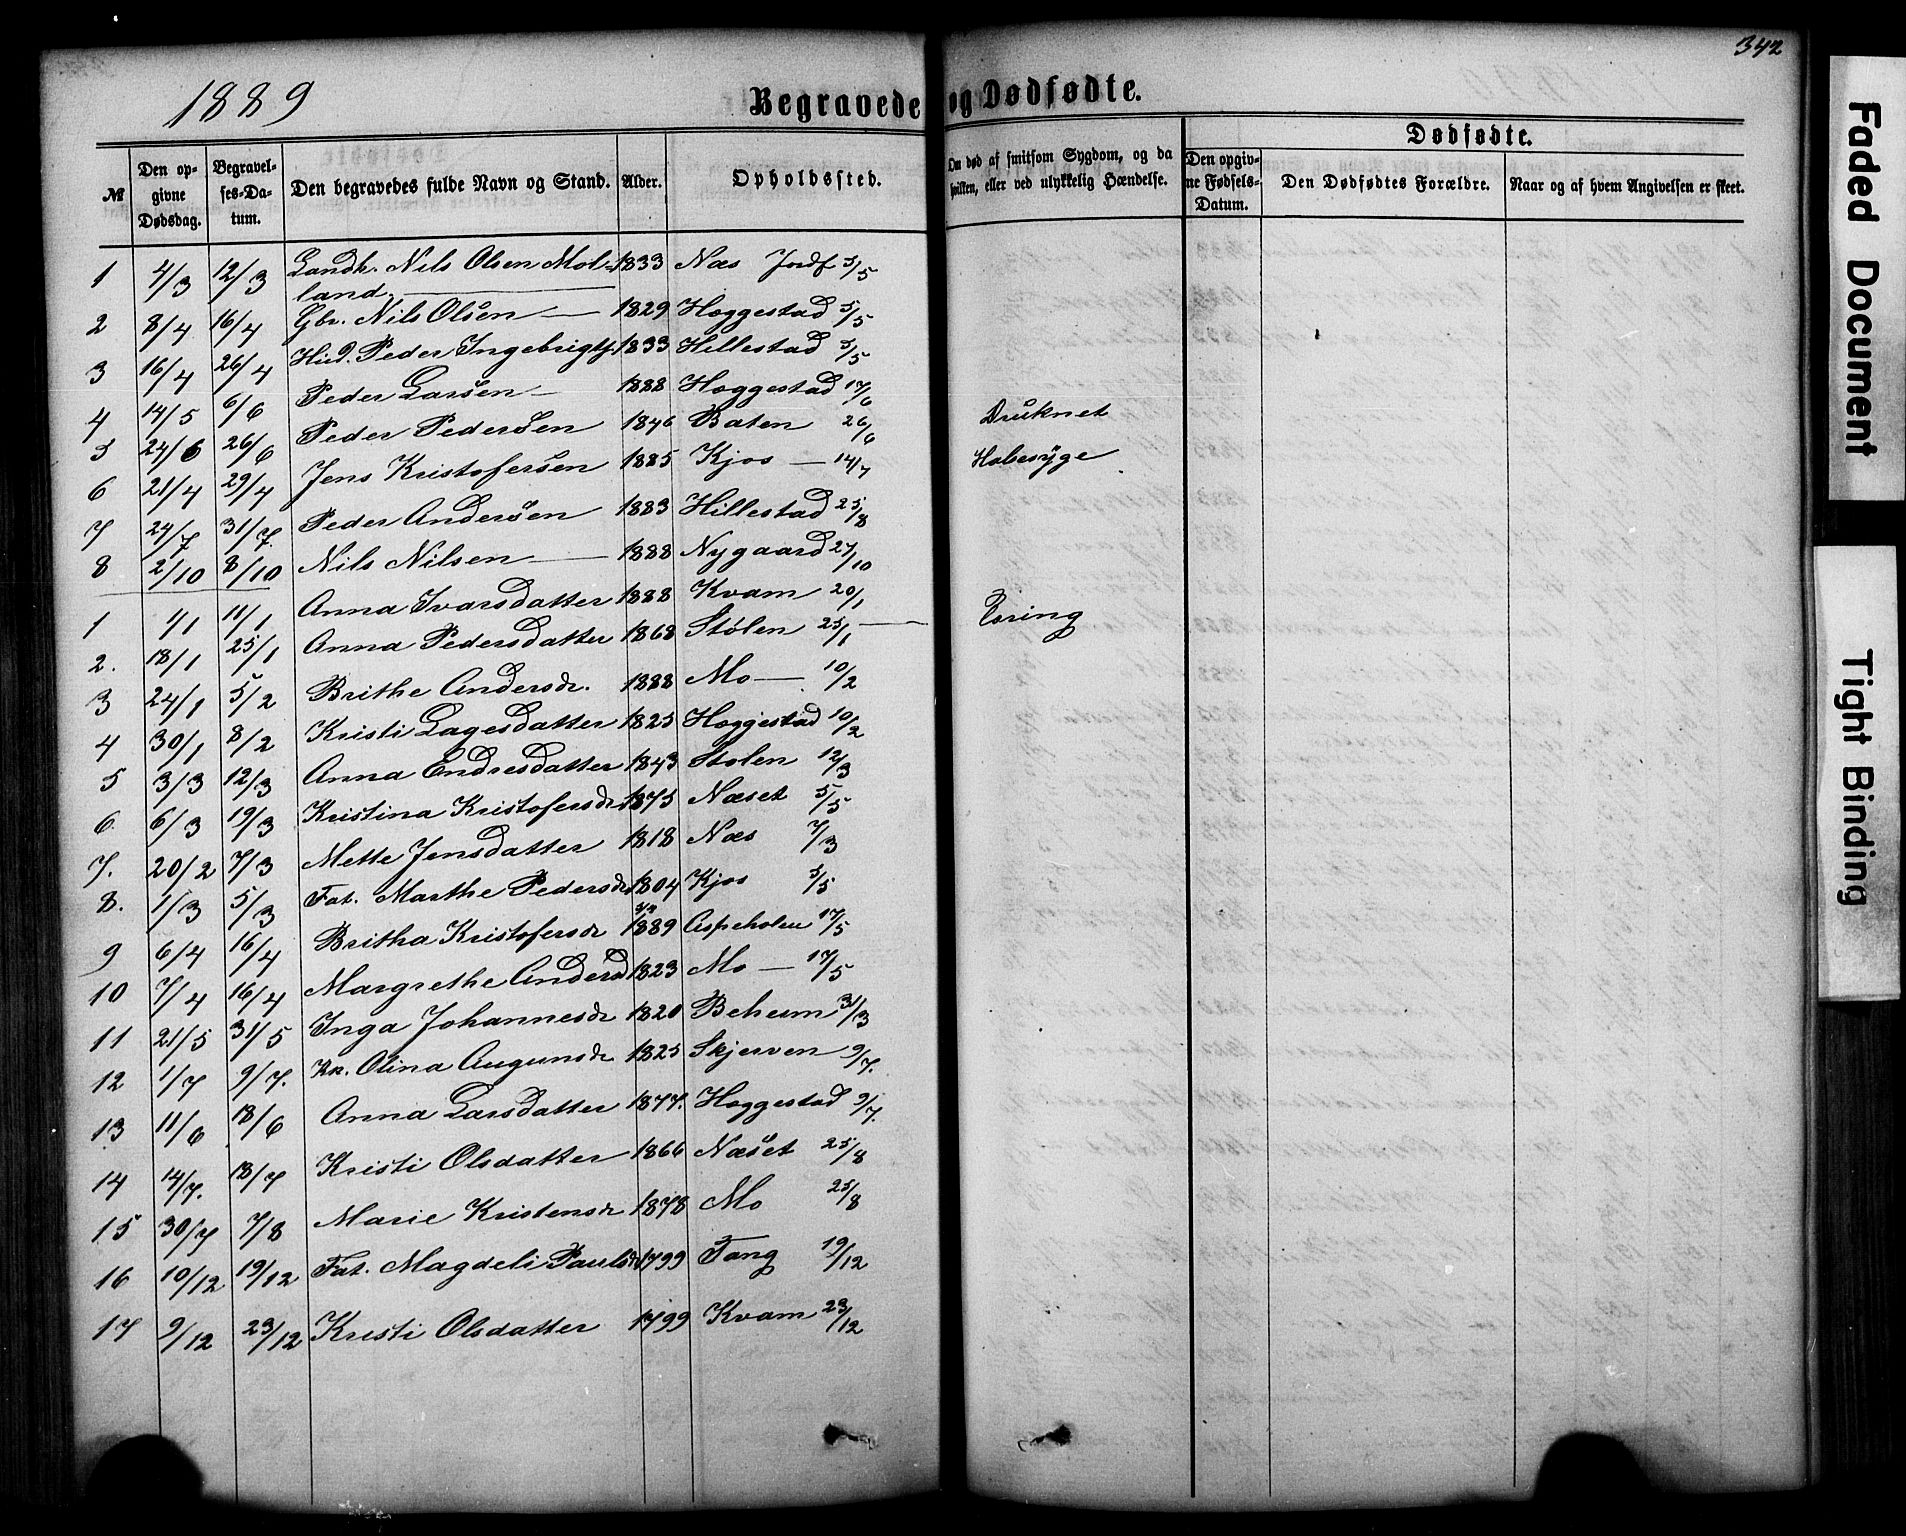 342
1889
Begravede og Dødfødte.
№ | Den opgivne Dødsdag. | Begravelses-Datum. | Den begravedes fulde Navn og Stand. | Alder. | Opholdssted. | Om død af smitsom Sygdom, og da hvilken, eller ved ulykkelig Hændelse. | Dødfødte. | Den opgivne Fødsels-Datum. | Den Dødfødtes Forældre. | Naar og af hvem Angivelsen er skeet.
1 4/3 12/3 Landh. Nils Olsen Molland. 1833 Næs Jordf 5/5
2 8/4 16/4 Gbr. Nils Olsen 1829 Hæggestad 5/5
3 16/4 26/4 Hud. Peder Ingebrigts. 1833 Hillestad 5/5
4 14/5 6/6 Peder Larsen 1888 Hæggestad 17/6
5 24/6 26/6 Peder Pedersen 1846 Baten 26/6 Druknet
6 21/4 29/4 Jens Kristofersen 1885 Kjos 14/7 Halsesyge
7 24/7 31/7. Peder Andersen 1883 Hillestad 25/8
8 2/10 8/10 Nils Nilsen 1888 Nygaard 27/10
1 1/1 11/1 Anna Ivarsdatter 1888 Kvam 20/1
2. 18/1 25/1 Anna Pedersdatter 1868 Stølen 25/1 Tæring
3 24/1 5/2 Brithe Andersdr. 1888 Mo 10/2
4 30/1 8/2 Kristi Lagesdatter 1825 Hæggestad 10/2
5 3/3 12/3 Anna Endresdatter 1843 Stølen 12/3
6. 6/3 19/3 Kristina Kristofersdr 1875 Næset 5/5
7. 20/2 7/3 Mette Jensdatter 1818 Næs 7/3
8. 1/3 5/3 Fat. Marthe Pedersdr 1804 Kjos 5/5
9 6/4 16/4 Britha Kristofersdr 1889 Aspeholen 17/5
10 7/4 16/4 Margrethe Andersd 1823 Mo 17/5
11 21/5 31/5 Inga Johannesdr 1820 Beheim 31/3
12 1/7 9/7. Kk. Olina Augunsdr 1825 Skjerven 9/7.
13 11/6 18/6 Anna Larsdatter 1877. Hæggestad 9/7.
14 14/7. 18/7 Kristi Olsdatter 1866 Næset 25/8
15 30/7 7/8 Marie Kristensdr 1878 Mo 25/8
16 10/12 19/12 Fat. Magdeli Paulsdr 1799 Tang 19/12
17 9/12 23/12 Kristi Olsdatter 1799 Kvam 23/12
Faded Document
Tight Binding